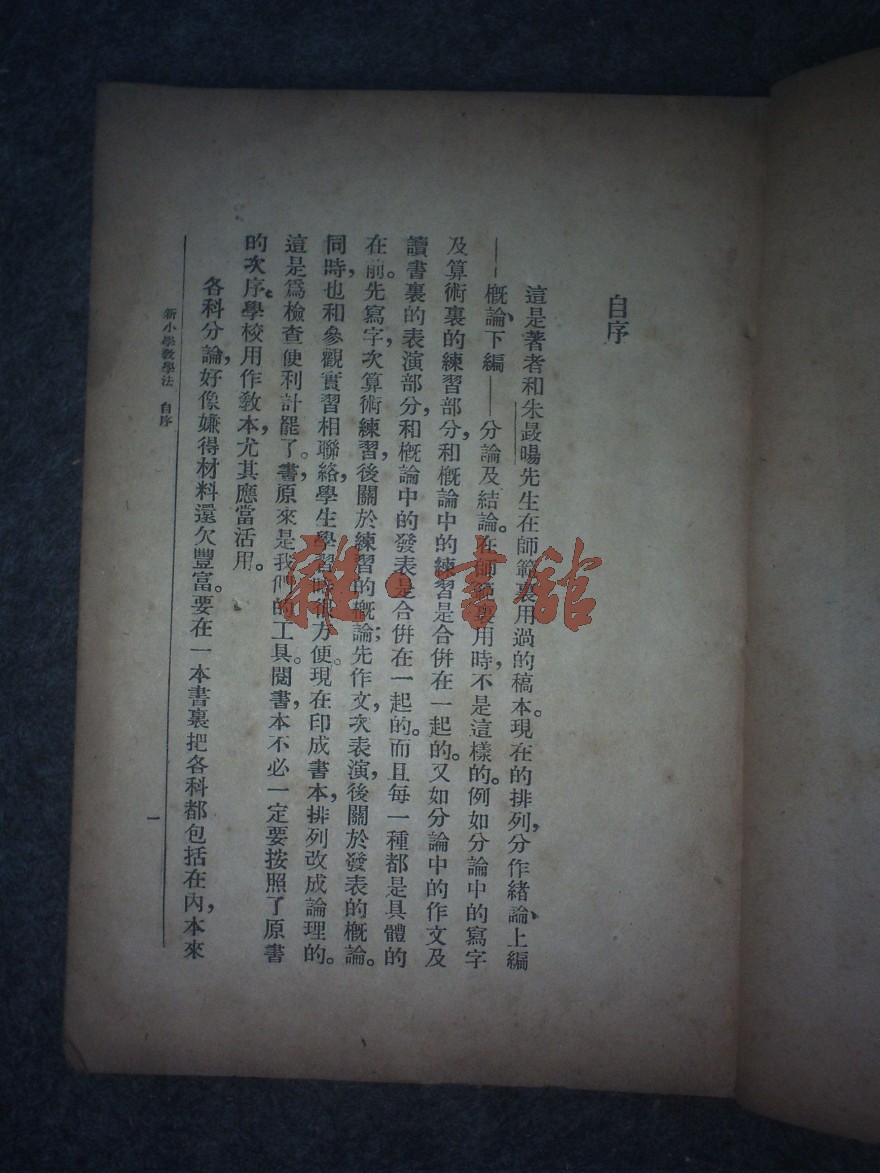 自序
這是著者和朱晸暘先生在師範裏用過的稿本。現在的排列，分作緒論、上編
——概論、下編——分論及結論。在師範裏用時，不是這樣的。例如分論中的寫字
及算術裏的練習部分，和概論中的練習是合併在一起的。又如分論中的作文及
讀書裏的表演部分，和概論中的發表是合併在一起的。而且每一種都是具體的
在前。先寫字，次算術練習，後關於練習的概論；先作文，次表演，後關於發表的概論。
同時，也和參觀實習相聯絡，學生學習時很方便。現在印成書本，排列改成論理的。
這是爲檢查便利計罷了。書原來是我們的工具。閱書本不必一定要按照了原書
的次序，學校用作教本，尤其應當活用。
各科分論，好像嫌得材料還欠豐富。要在一本書裏把各科都包括在內，本來
新小學教學法　自序
一
雜·書館